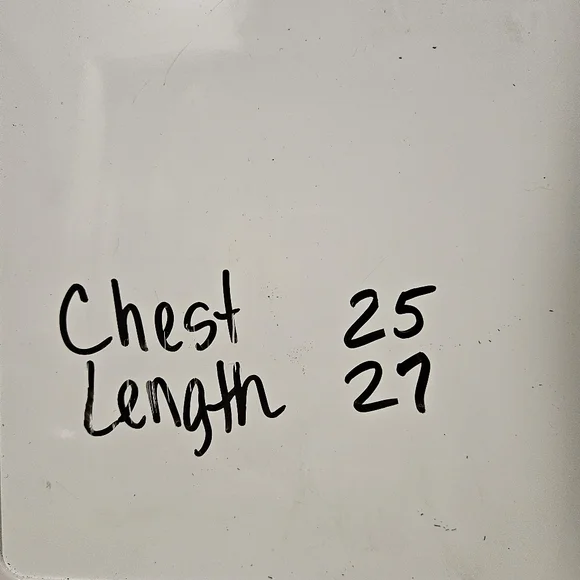 Chest 25
Length 27